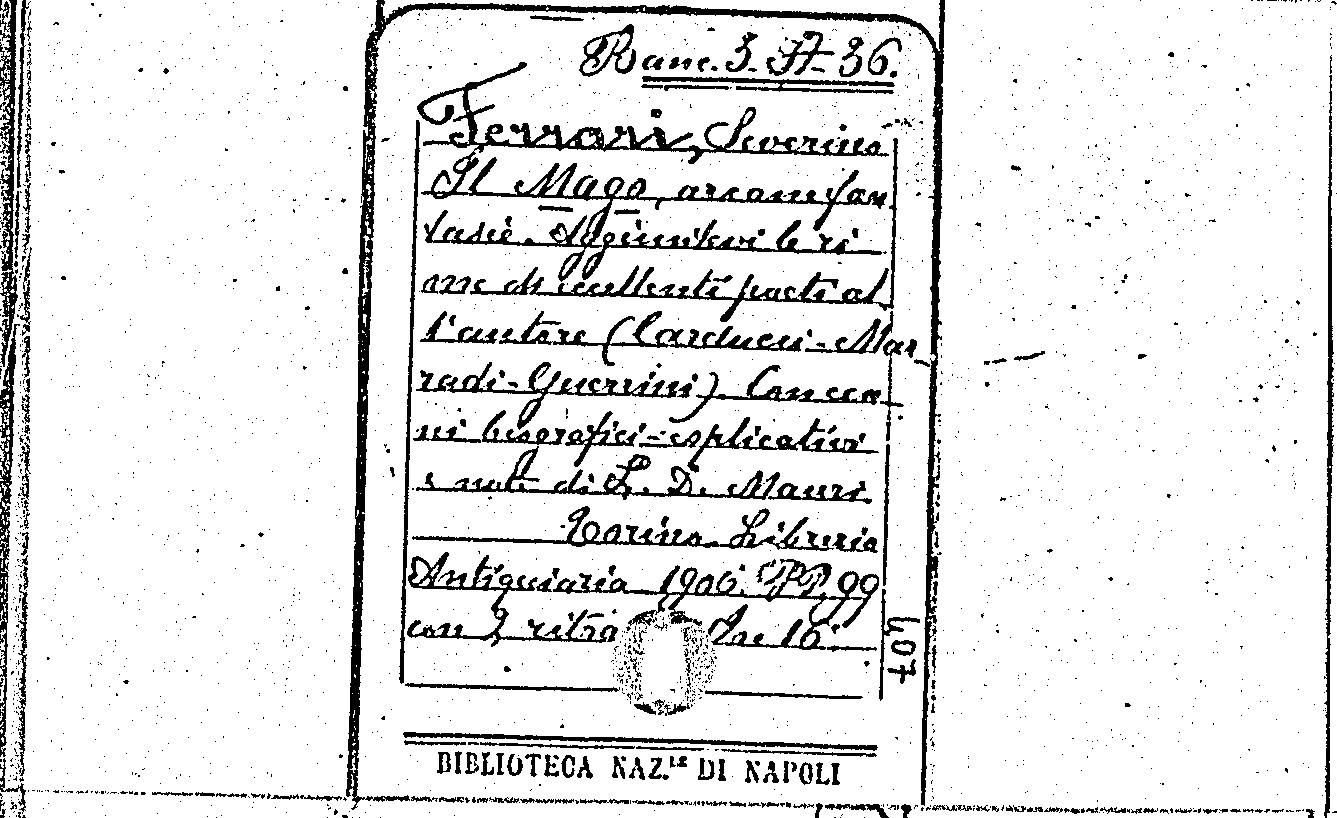 Ranc. 3. A-36.
Ferrari, Severino
Il Mago, arcane fan
tasie. Aggiuntevi le ri
me di eccellenti poeti al
l'autore (Carducci-Mar
radi-Guerrini). Con cen
ni biografici-esplicativi
e note di L. D. Mauri
Torino. Libreria
Antiquiaria 1906. PP. 99
con 2 ritra In 16.
407
BIBLIOTECA NAZ.LE DI NAPOLI